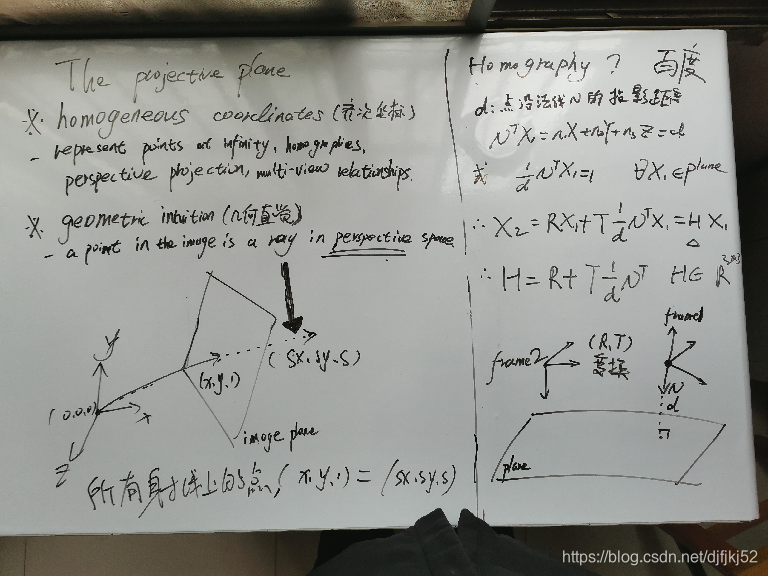 The projective plane
※. homogeneous coordinates (齐次坐标)
- represent points at infinity, homographies,
perspective projection, multi-view relationships.
※. geometric intuition (几何直觉)
- a point in the image is a ray in perspective space
y
(0,0,0)
x
z
(x,y,1)
(sx,sy,s)
image plane
所有射线上的点, (x,y,1) = (sx,sy,s)
Homography ? 百度
d: 点沿法线N的投影距离
NᵀX₁ = n₁X+n₂Y+n₃Z=d
1/d NᵀX₁=1 ∀X₁∈plane
∴ X₂ = RX₁+T 1/d NᵀX₁ = H X₁
∴ H = R+ T 1/d Nᵀ H∈ R³ˣ³
frame1
frame2
(R,T)
变换
N
d
plane
https://blog.csdn.net/djfjkj52